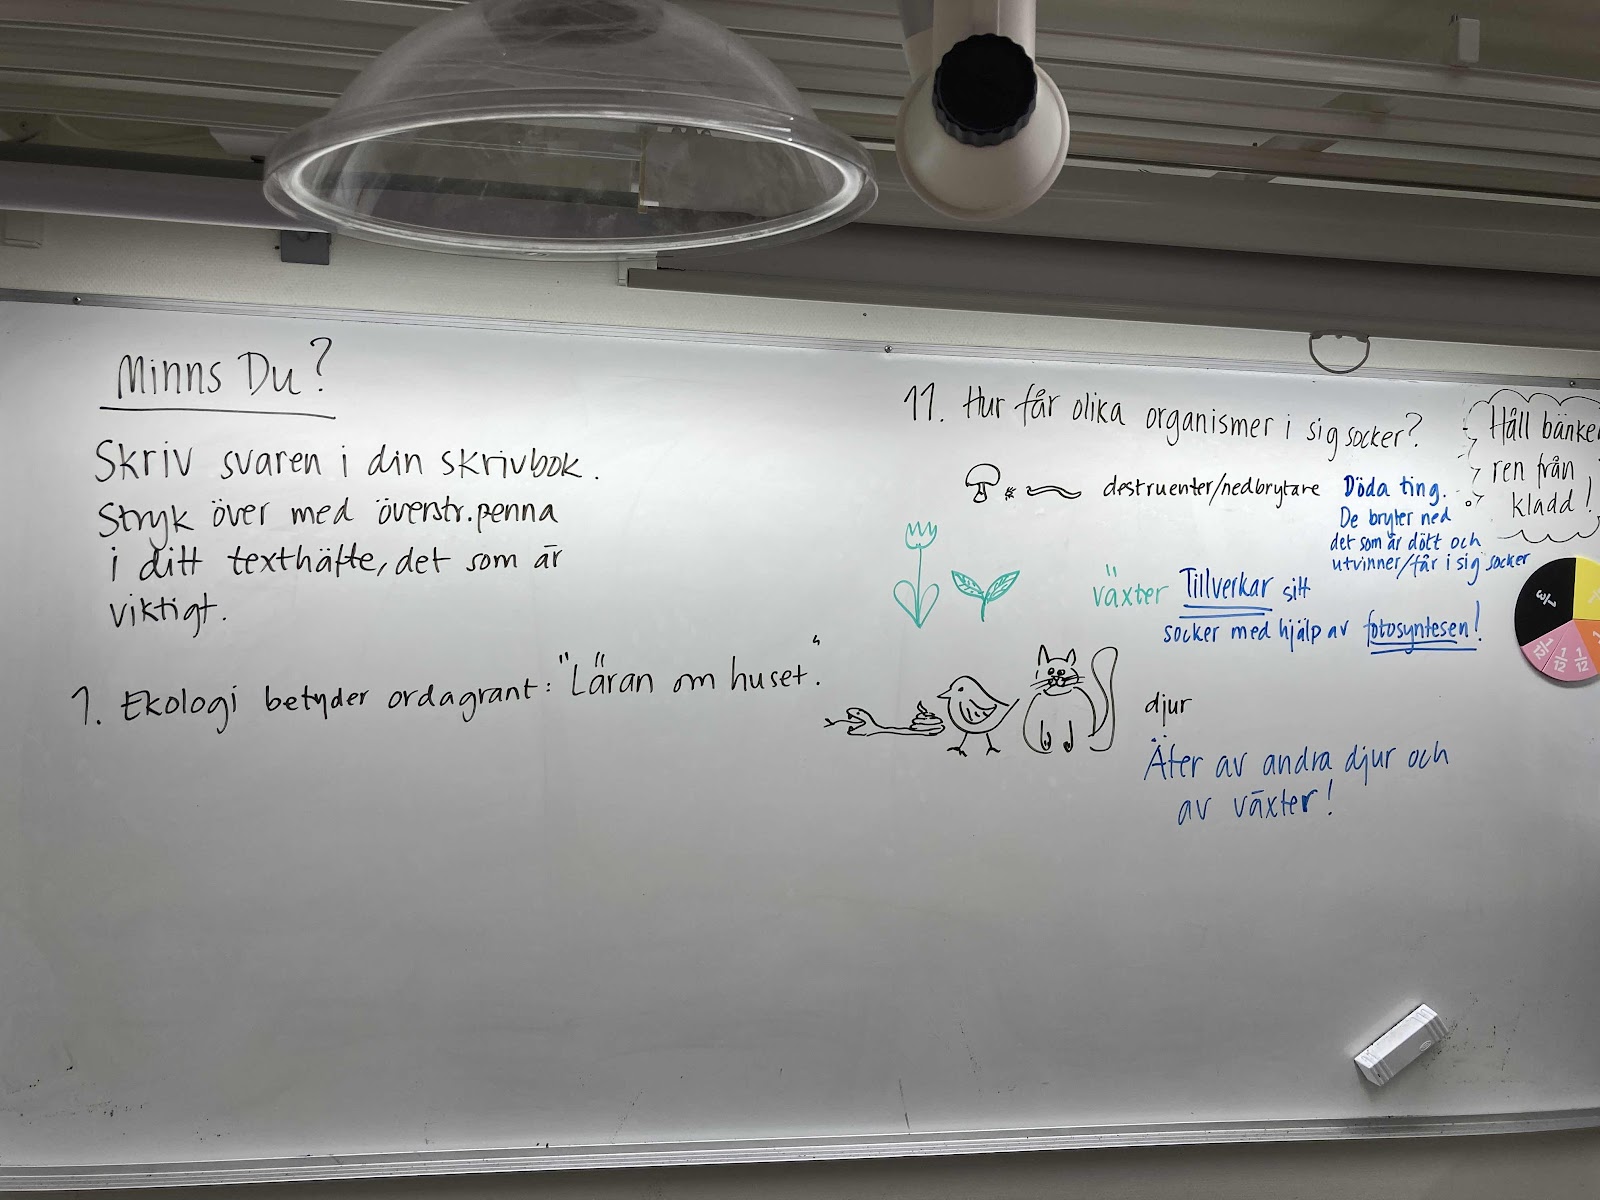 Minns Du?
Skriv svaren i din skrivbok.
Stryk över med överstr.penna
i ditt texthäfte, det som är
viktigt.
1. Ekologi betyder ordagrant: "Läran om huset."
11. Hur får olika organismer i sig socker?
destruenter/nedbrytare Döda ting.
De bryter ned
det som är dött och
utvinner/får i sig socker
växter Tillverkar sitt
socker med hjälp av fotosyntesen!
djur
Äter av andra djur och
av växter!
Håll bänken
ren från
kladd!
1/3
1/12
1/12
1/12